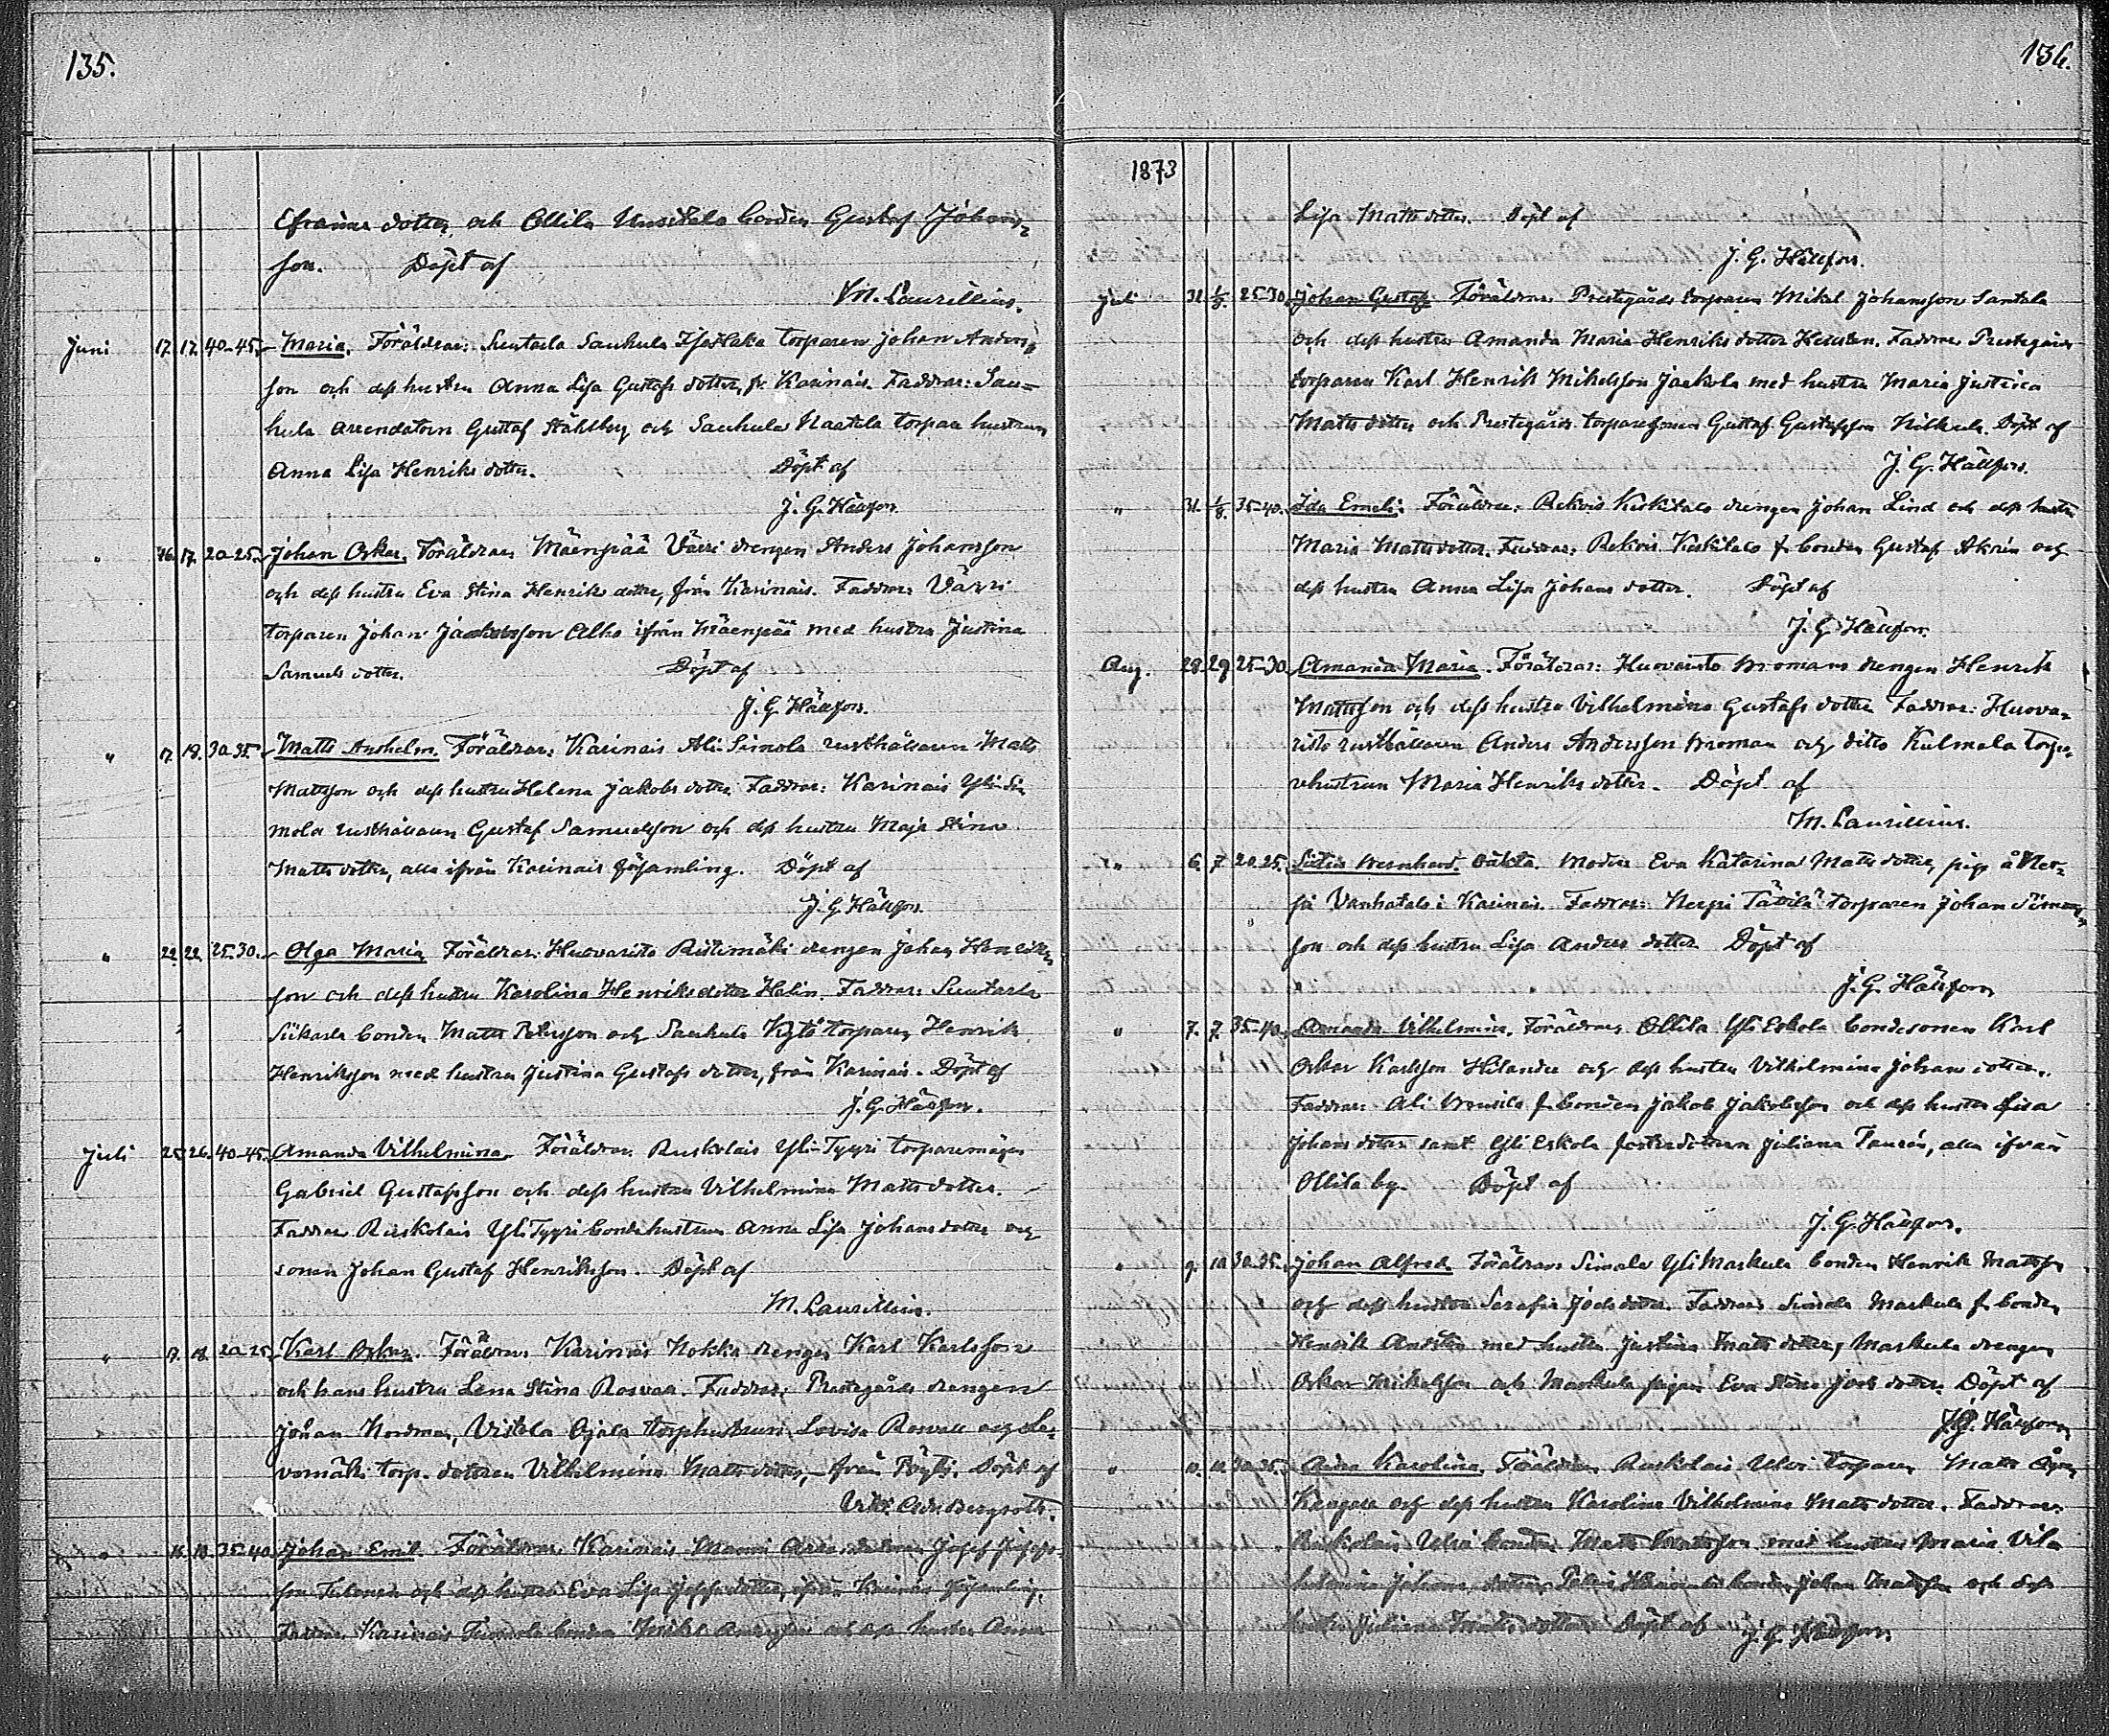 135.
Efraims dotter och Ollila Uusitalo bonden Gustaf Johans-
son. Döpt af
M. Laurellius.
Juni 17. 17. 40-45. Maria. Föräldrar: Suutarla Sauhula torparen Johan Anders-
son och dess hustru Anna Lisa Gustafs dotter, fr. Karinais. Faddrar: Sau-
hula arrendatorn Gustaf Ståhlberg och Sauhula Naatula torpare hustrun
Anna Lisa Henriks dotter. Döpt af
J. G. Hällfors.
" 16. 17. 20-25. Johan Oskar. Föräldrar: Mäenpää Värri drengen Anders Johansson
och dess hustru Eva Stina Henriks dotter, från Karinais. Faddrar: Värri
torparen Johan Jaakobsson Alho ifrån Mäenpää med hustru Justina
Samuels dotter. Döpt af
J. G. Hällfors.
" 17. 18. 30-35. Matts Anshelm. Föräldrar: Karinais Ali-Simola rusthållaren Matts
Mattsson och dess hustru Helena Jakobs dotter. Faddrar: Karinais Yli-Si-
mola rusthållaren Gustaf Samuelsson och dess hustru Maja Stina
Matts dotter, alla ifrån Karinais församling. Döpt af
J. G. Hällfors.
" 22. 22. 25-30. Olga Maria. Föräldrar: Huovaristo Ristimäki drengen Johan Henriks-
son och dess hustru Karolina Henriks dotter Helin. Faddrar: Suutarla
Siikarla bonden Matts Petersson och Sauhula Kytö torparen Henrik
Henriksson med hustru Justina Gustafs dotter, från Karinais. Döpt af
J. G. Hällfors.
Juli 25. 26. 40-45. Amanda Vilhelmina. Föräldrar: Ruskolais Yli-Tyyri torparemågen
Gabriel Gustafsson och dess hustru Vilhelmina Matts dotter.
Faddrar Ruskolais Yli Tyyri bondehustrun Anna Lisa Johans dotter och
sonen Johan Gustaf Henriksson. Döpt af
M. Laurellius.
" 17. 18. 20-25. Karl Oskar. Föräldrar: Karinais Nokka drengen Karl Karlsson
och hans hustru Lena Stina Rosvall. Faddrar: Prestegårds drengen
Johan Nordman, Vistola Ojala torphustrun Lovisa Rosvall och Le-
vomäki torp. dottren Vilhelmina Matts dotter, från Pöytis. Döpt af
Vikt. Adv. Bergroth.
" 35-40. Johan Emil. Föräldrar: Karinais Manni Josef Josefs-
son och dess hustru Eva Lisa Josefs dotter, ifrån Karinais församling.
Faddrar Karinais bonden Mikel Andersson och dess hustru Anna
136.
1873
Lisa Matts dotter. Döpt af
J. G. Hällfors.
Juli 31. 1/8. 25-30. Johan Gustaf. Föräldrar Prestegårds torparen Mikel Johansson Santala
och dess hustru Amanda Maria Henriks dotter Hellsten. Faddrar Prestegårds
torparen Karl Henrik Mikelsson Jaakola med hustru Maria Justina
Matts dotter och Prestegårds torparesonen Gustaf Gustafsson Nikkula. Döpt af
J. G. Hällfors.
" 31. 1/8. 35-40. Ida Emeli. Föräldrar: Rekois Keskitalo drengen Johan Lind och dess hustru
Maria Matts dotter. Faddrar: Rekois Keskitalo f. bonden Gustaf Akrén och
dess hustru Anna Lisa Johans dotter. Döpt af
J. G. Hällfors.
Aug. 28. 29. 25-30. Amanda Maria. Föräldrar: Huovaristo Bromans drengen Henrik
Mattsson och dess hustru Vilhelmina Gustafs dotter. Faddrar: Huova-
risto rusthållaren Anders Andersson Broman och ditto Kulmala torpa-
rehustrun Maria Henriks dotter. Döpt af
M. Laurellius.
" 6. 7. 20-25. Bernhard. Oäkta. Moder Eva Katarina Matts dotter, piga å Ner-
pi Vanhatalo i Karinais. Faddrar: Nerpi Tättilä torparen Johan Simons-
son och dess hustru Lisa Anders dotter. Döpt af
J. G. Hällfors
" 7. 7. 35-40. Amanda Vilhelmina. Föräldrar Ollila Yli Eskola bondesonen Karl
Oskar Karlsson Hilander och dess hustru Vilhelmina Johans dotter.
Faddrar: Ali f. bonden Jakob Jakobsson och dess hustru Lisa
Johans dotter samt Yli Eskola fosterdottern Juliana Taurén, alla ifrån
Ollila by. Döpt af
J. G. Hällfors.
" 9. 10. 30-35. Johan Alfred. Föräldrar Simala Yli Markula bonden Henrik Mattsson
och dess hustru Serafia Joels dotter. Faddrar Simala Markula f. bonden
Henrik med hustru Justina Matts dotter, Markula drengen
Oskar Mikelsson och Markula pigan Eva Stina Joels dotter. Döpt af
J. G. Hällfors
" 30-35. Aida Karolina. Föräldrar Ruskolais Ulvi torparen Matts
Kangare och dess hustru Karolina Vilhelmina Matts dotter. Faddrar:
Ruskolais Ulvi bonden Matts Mattsson med hustru Maria Vil-
helmina Johans dotter, bonden Johan Mattsson och dess
hustru Juliana dotter. Döpt af J. G. Hällfors.